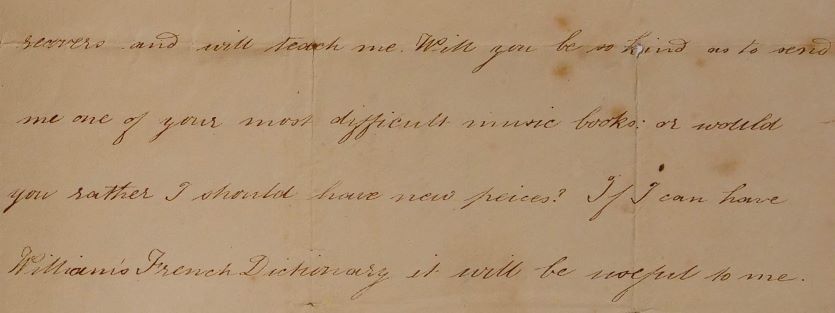 and will teach me. Will you be so kind as to send
me one of your most difficult music books: or would
you rather I should have new peices? If I can have
William's French Dictionary it will be useful to me.